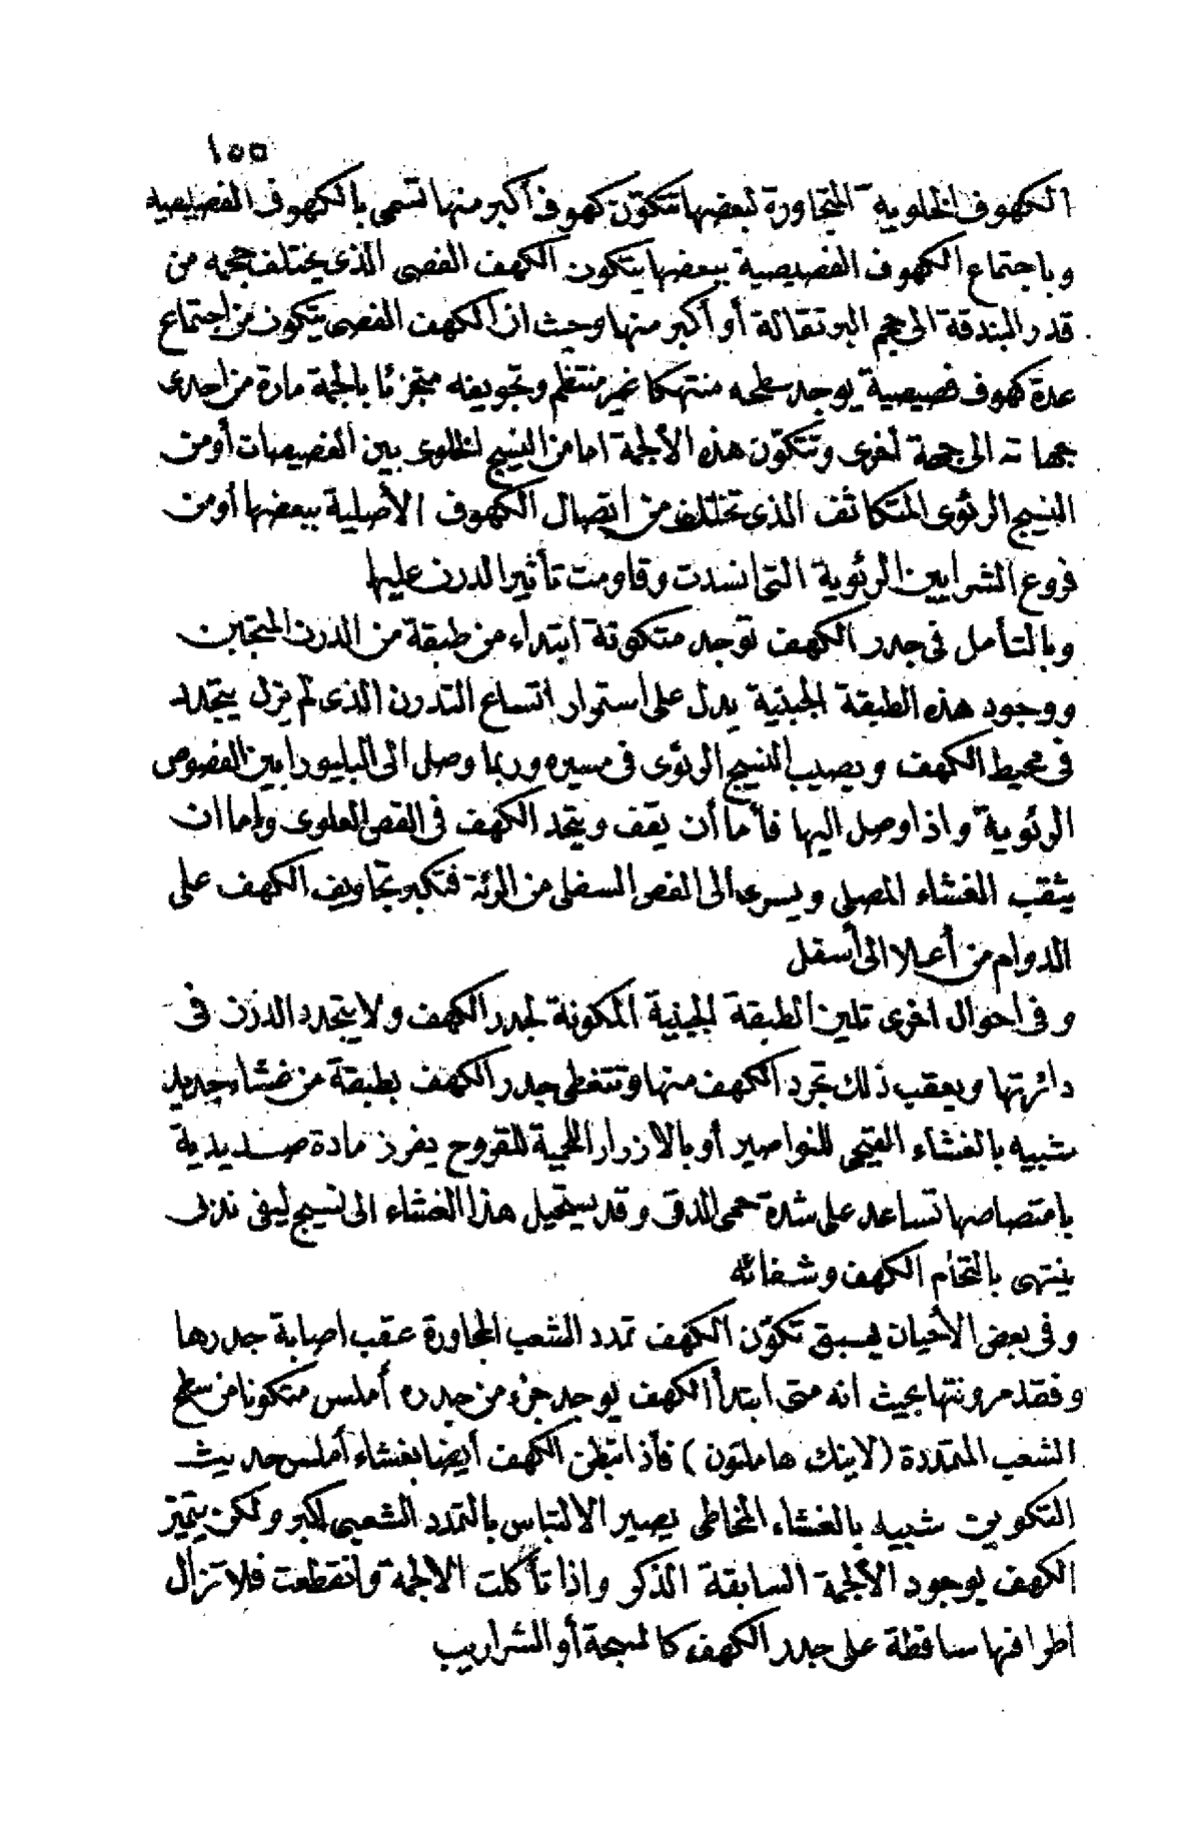 ١٥٥
الكهوف الخلوية المتجاورة لبعضها تتكوّن كهوف أكبر منها تسمى بالكهوف الفصيصية
وباجتماع الكهوف الفصيصية ببعضها يتكون الكهف الفصى الذى يختلف حجمه من
قدر البندقة الى حجم البرتقالة أو أكبر منها وحيث ان الكهف الفصى يتكون من اجتماع
عدة كهوف فصيصية يوجد سطحه منتهكا غير منتظم وتجويفه متجزئا بالجمة مارة من احدى
جهاته الى جهة أخرى وتتكوّن هذه الألجمة اما من النسيج الخلوى بين الفصيصات أو من
النسيج الرئوى المتكاثف الذى تخلف من اتصال الكهوف الأصلية ببعضها أو من
فروع الشرايين الرئوية التى انسدت وقاومت تأثير الدرن عليها
وبالتأمل فى جدر الكهف توجد متكونة ابتداء من طبقة من الدرن المتجبن
ووجود هذه الطبقة الجبنية يدل على استمرار اتساع التدرن الذى لم يزل يتجدد
فى محيط الكهف ويصيب النسيج الرئوى فى مسيره وربما وصل الى البليورا بين الفصوص
الرئوية واذا وصل اليها فأما أن يقف ويتحد الكهف فى الفص العلوى واما ان
يثقب الغشاء المصلى ويسرى الى الفص السفلى من الرئة فتكبر تجاويف الكهف على
الدوام من أعلا الى أسفل
وفى احوال اخرى تلين الطبقة الجبنية المكونة لجدر الكهف ولا يتجدد الدرن فى
دائرتها ويعقب ذلك تجرد الكهف منها وتتغطى جدر الكهف بطبقة من غشاء جديد
شبيه بالغشاء القيحى للنواصير أو بالازرار اللحمية للقروح يفرز مادة صديدية
بامتصاصها تساعد على شدة حمى الدق وقد يستحيل هذا الغشاء الى نسيج ليفى ندبى
ينتهى بالتحام الكهف وشفائه
وفى بعض الأحيان يسبق تكوّن الكهف تمدد الشعب المجاورة عقب اصابة جدرها
وفقد مرونتها بحيث انه متى ابتدأ الكهف يوجد جزء من جدره أملس متكونا من سطح
الشعب المتمددة (لاينك هاملتون) فأذا تبطن الكهف أيضا بغشاء أملس حديث
التكوين شبيه بالغشاء المخاطى يصير الالتباس بالتمدد الشعبى اكبر ولكن يتميز
الكهف بوجود الألجمة السابقة الذكر واذا تأكلت الالجمة وانقطعت فلا تزال
اطرافها ساقطة على جدر الكهف كالسبحة أو الشراريب